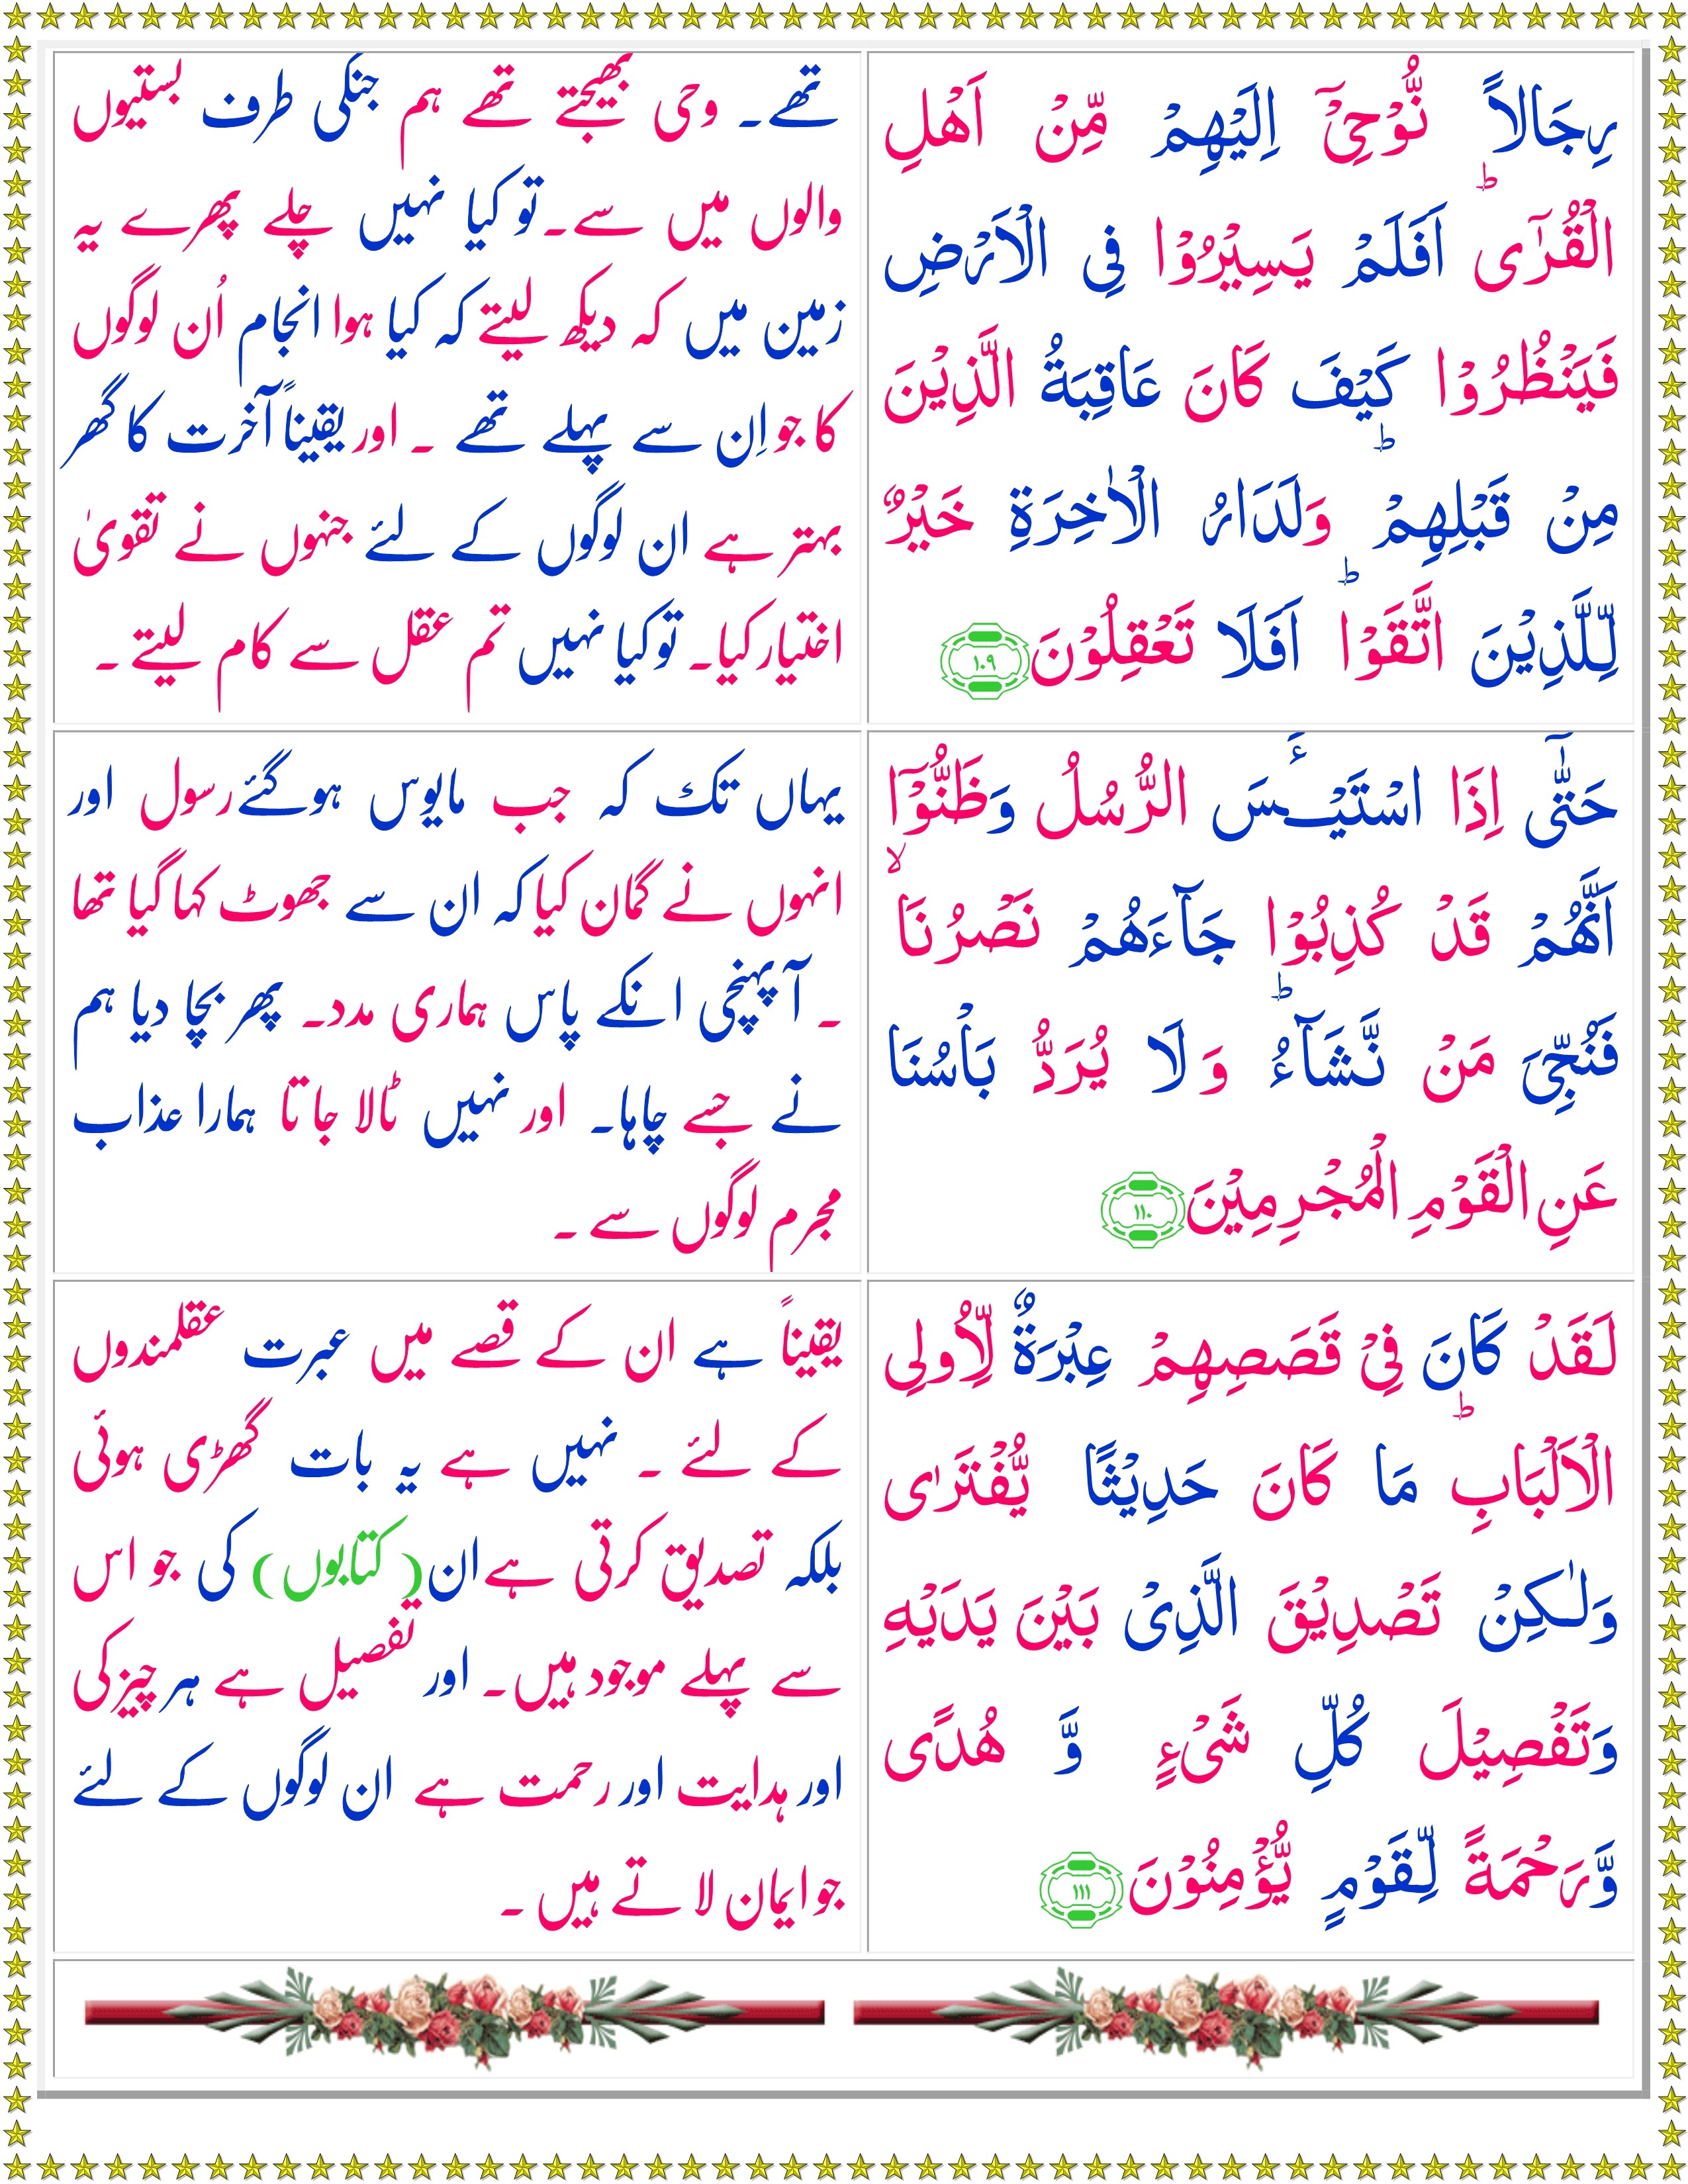 رِجَالًا نُّوْحِيْۤ اِلَيْهِمْ مِّنْ اَهْلِ
الْقُرٰىؕ اَفَلَمْ يَسِيْرُوْا فِى الْاَرْضِ
فَيَنْظُرُوْا كَيْفَ كَانَ عَاقِبَةُ الَّذِيْنَ
مِنْ قَبْلِهِمْؕ وَلَدَارُ الْاٰخِرَةِ خَيْرٌ
لِّلَّذِيْنَ اتَّقَوْاؕ اَفَلَا تَعْقِلُوْنَ ۱۰۹
تھے۔ وحی بھیجتے تھے ہم جنکی طرف بستیوں
والوں میں سے۔ تو کیا نہیں چلے پھرے یہ
زمین میں کہ دیکھ لیتے کہ کیا ہوا انجام اُن لوگوں
کا جو اِن سے پہلے تھے ۔ اور یقیناً آخرت کا گھر
بہتر ہے ان لوگوں کے لئے جنہوں نے تقویٰ
اختیار کیا۔ تو کیا نہیں تم عقل سے کام لیتے ۔
حَتّٰۤى اِذَا اسْتَيْـــَٔسَ الرُّسُلُ وَظَنُّوْۤا
اَنَّهُمْ قَدْ كُذِبُوْا جَآءَهُمْ نَصْرُنَاۙ
فَنُجِّىَ مَنْ نَّشَآءُؕ وَلَا يُرَدُّ بَاْسُنَا
عَنِ الْقَوْمِ الْمُجْرِمِيْنَ ۱۱۰
یہاں تک کہ جب مایوس ہوگئے رسول اور
انہوں نے گمان کیا کہ ان سے جھوٹ کہا گیا تھا
۔ آپہنچی انکے پاس ہماری مدد۔ پھر بچا دیا ہم
نے جسے چاہا۔ اور نہیں ٹالا جاتا ہمارا عذاب
مجرم لوگوں سے ۔
لَـقَدْ كَانَ فِىْ قَصَصِهِمْ عِبْرَةٌ لِّاُولِى
الْاَلْبَابِؕ مَا كَانَ حَدِيْثًا يُّفْتَرٰى
وَلٰـكِنْ تَصْدِيْقَ الَّذِىْ بَيْنَ يَدَيْهِ
وَتَفْصِيْلَ كُلِّ شَىْءٍ وَّ هُدًى
وَّرَحْمَةً لِّقَوْمٍ يُّؤْمِنُوْنَ ۱۱۱
یقیناً ہے ان کے قصے میں عبرت عقلمندوں
کے لئے ۔ نہیں ہے یہ بات گھڑی ہوئی
بلکہ تصدیق کرتی ہے ان (کتابوں) کی جو اس
سے پہلے موجود ہیں۔ اور تفصیل ہے ہر چیز کی
اور ہدایت اور رحمت ہے ان لوگوں کے لئے
جو ایمان لاتے ہیں ۔